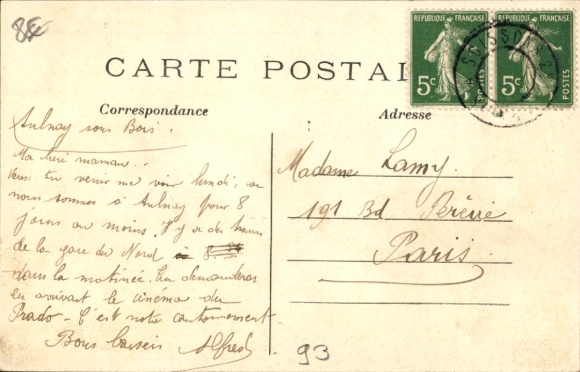 8€
RÉPUBLIQUE FRANÇAISE
5c
POSTES
RÉPUBLIQUE FRANÇAISE
5c
POSTES
SOISSONS
CARTE POSTAL
Correspondance
Adresse
Aulnay sous Bois.
Ma chère maman..
Veux-tu venir me voir lundi, car
nous sommes à Aulnay pour 8
jours au moins. Il y a des trains
de la gare du Nord
dans la matinée. Tu demanderas
en arrivant le cinema du
Prado - C'est notre cantonnement
Bons baisers Alfred
Madame Lamy.
191 Bd Péreire
Paris.
93